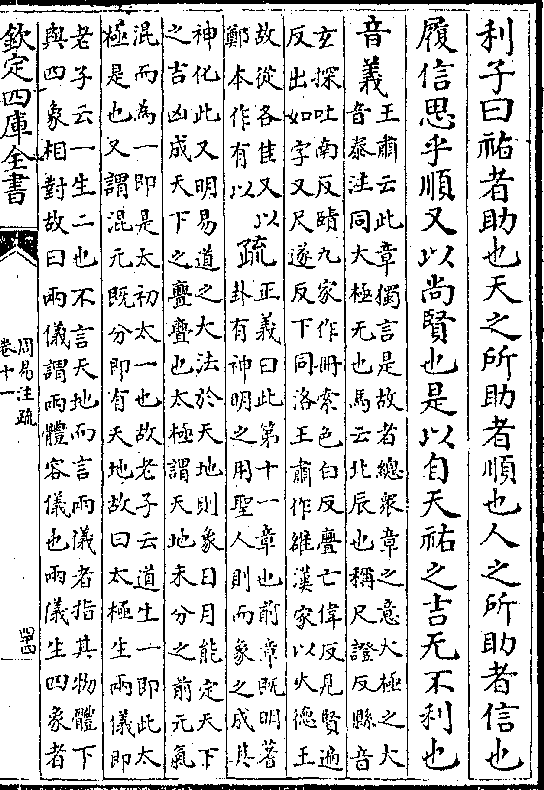 利子曰祐者助也天之所助者順也人之所助者信也
履信思乎順又以尚賢也是以自天祐之吉无不利也
音義王肅云此章獨言是故者總衆章之意大極之大
音泰注同大極无也馬云北辰也稱尺證反縣音
玄探吐南反賾九家作冊索色白反亹亡偉反見賢遍
反出如字又尺遂反下同洛王肅作雒漢家以火德王
故從各隹又以
鄭本作有以
疏正義曰此第十一章也前章既明蓍
卦有神明之用聖人則而象之成其
神化此又明易道之大法於天地則象日月能定天下
之吉凶成天下之亹亹也太極謂天地未分之前元氣
混而為一即是太初太一也故老子云道生一即此太
極是也又謂混元既分即有天地故曰太極生兩儀即
老子云一生二也不言天地而言兩儀者指其物體下
與四象相對故曰兩儀謂兩體容儀也兩儀生四象者
欽定四庫全書
周易注疏
卷十一